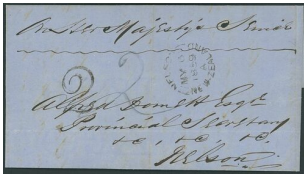 On Her Majesty's Service
2
Alfred Domett Esqr
Provincial Secretary
&c, &c, &c.
Nelson